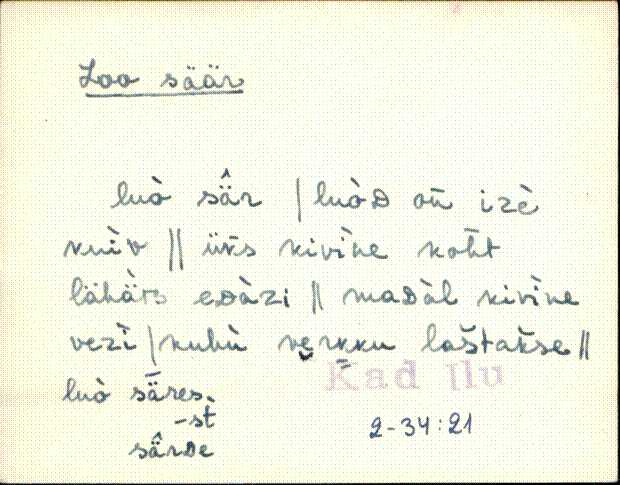 Loo säär
luò sä̂r | luòᴅ on̄ izè
kuìv || ük̄s kivìne koh̄t
lähäTs eᴅàzi || maᴅàl kivìne
vezì | kuhù verkku laštak̆se ||
luò sǟres.
-st̀
sä̂rᴅe
Kad Ilu
2-34:21